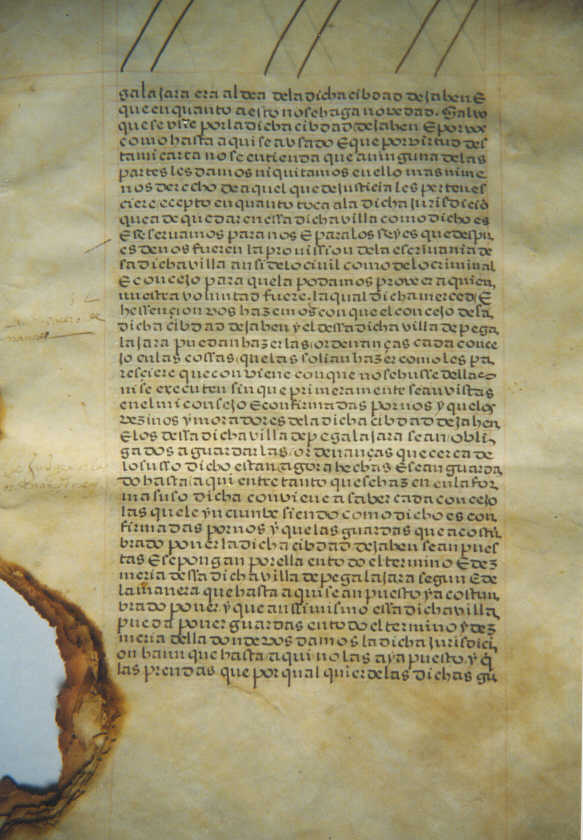 galajara era aldea dela dicha cibdad de Jahen E
que en quanto a esto no se haga novedad. Salvo
que se use por la dicha cibdad de Jahen E por vos
como hasta aqui se a usado E que por virtud des
ta mi carta no se entienda que a uninguna de las
partes les damos ni quitamos en ello mas ni me
nos derecho de aquel que de Justicia les pertenes
ciere ecepto en quanto toca ala dicha Jurisdiciõ
que a de quedar en essa dicha villa como dicho es
E reservamos para nos E para los reyes que despu
es de nos fueren la provission dela escrivania de
sa dicha villa ansi delo civil como delo criminal
E concejo para que la podamos proveer a quien
nuestra voluntad fuere. la qual dicha merced E
hessençion vos hazemos con que el concejo de la
dicha cibdad de Jahen y el dessa dicha villa de pega
lajara puedan hazer las ordenanças cada conce
jo en las cossas que las solian hazer como les pa
resçiere que conviene con que no se husse dellas
ni se executen sin que primeramente sean vistas
en el mi consejo E confirmadas por nos y que los
vezinos y moradores dela dicha cibdad de Jahen
E los dessa dicha villa de pegalajara sean obli
gados a guardar las ordenanças que cerca de
lo susso dicho estan agora hechas E se an guarda
do hasta aqui entre tanto que se hazen en la for
ma suso dicha conviene a saber cada concejo
las que le yncunbe siendo como dicho es con
firmadas por nos y que las guardas que a costũ
brado poner la dicha cibdad de Jahen sean pues
tas E se pongan por ella en todo el termino E dez
meria dessa dicha villa de pegalajara segun E de
la manera que hasta aqui se an puesto y a costun
brado poner. y que anssimismo essa dicha villa
pueda poner guardas en todo el termino y dez
meria della donde vos damos la dicha Jurisdici
on haun que hasta aqui no las aya puesto. y q̃
las prendas que por qualquier delas dichas gu